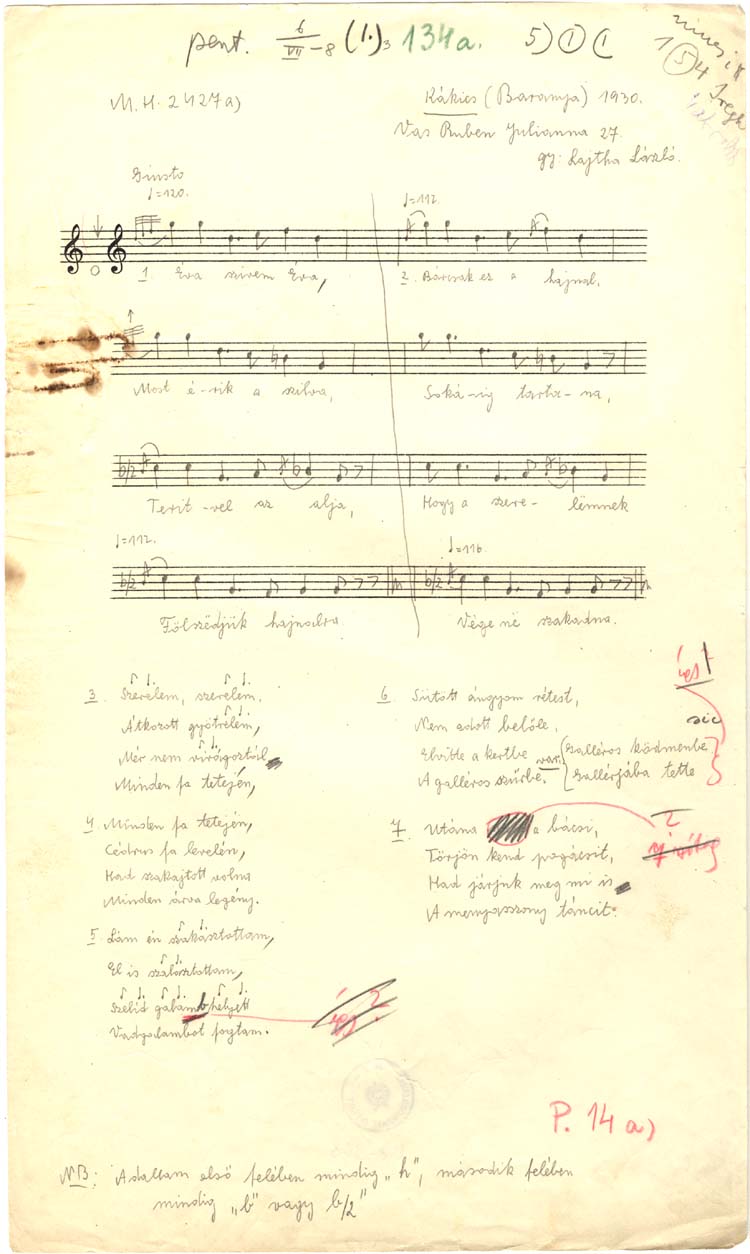 pent. 6/VII-8 (1.)3 134a. 5) ① (1
1 ⑤ 4
M.H. 2427a)
Kákics (Baranya) 1930.
Vas Ruben Julianna 27.
gy: Lajtha László.
Giusto
♩=120.
♩=112.
1 Éva szivem Éva,
2. Bárcsak ez a hajnal,
Most é-rik a szilva,
Soká-ig tarta-na,
b/2
Terit-vel az alja,
Hogy a szere-lëmnek
♩=112.
♩=116.
b/2 b/2
Fölszëdjük hajnalra
Vége në szakadna.
3. Szerelem, szerelem,
Átkozott gyötrelëm,
Mér nem virágoztál
Minden fa tetején,
4 Minden fa tetején,
Cédrus fa levelén,
Had szakajtott volna
Minden árva legény.
5 Lám én szakásztottam,
El is szalásztottam,
Szelid galamb helyëtt
Vadgalambot fogtam.
így?
6. Sütött ángyom rétest,
Nem adott belőle,
Elvitte a kertbe var. (Galléros ködmenbe
A galléros szűrbe. Gallérjába tette
sic
7. Utána a bácsi,
Törjön kend pogácsit,
Had járjuk meg mi is
A menyasszony táncit.
P. 14a)
NB: A dallam első felében mindig „h", második felében
mindig „b" vagy b/2"